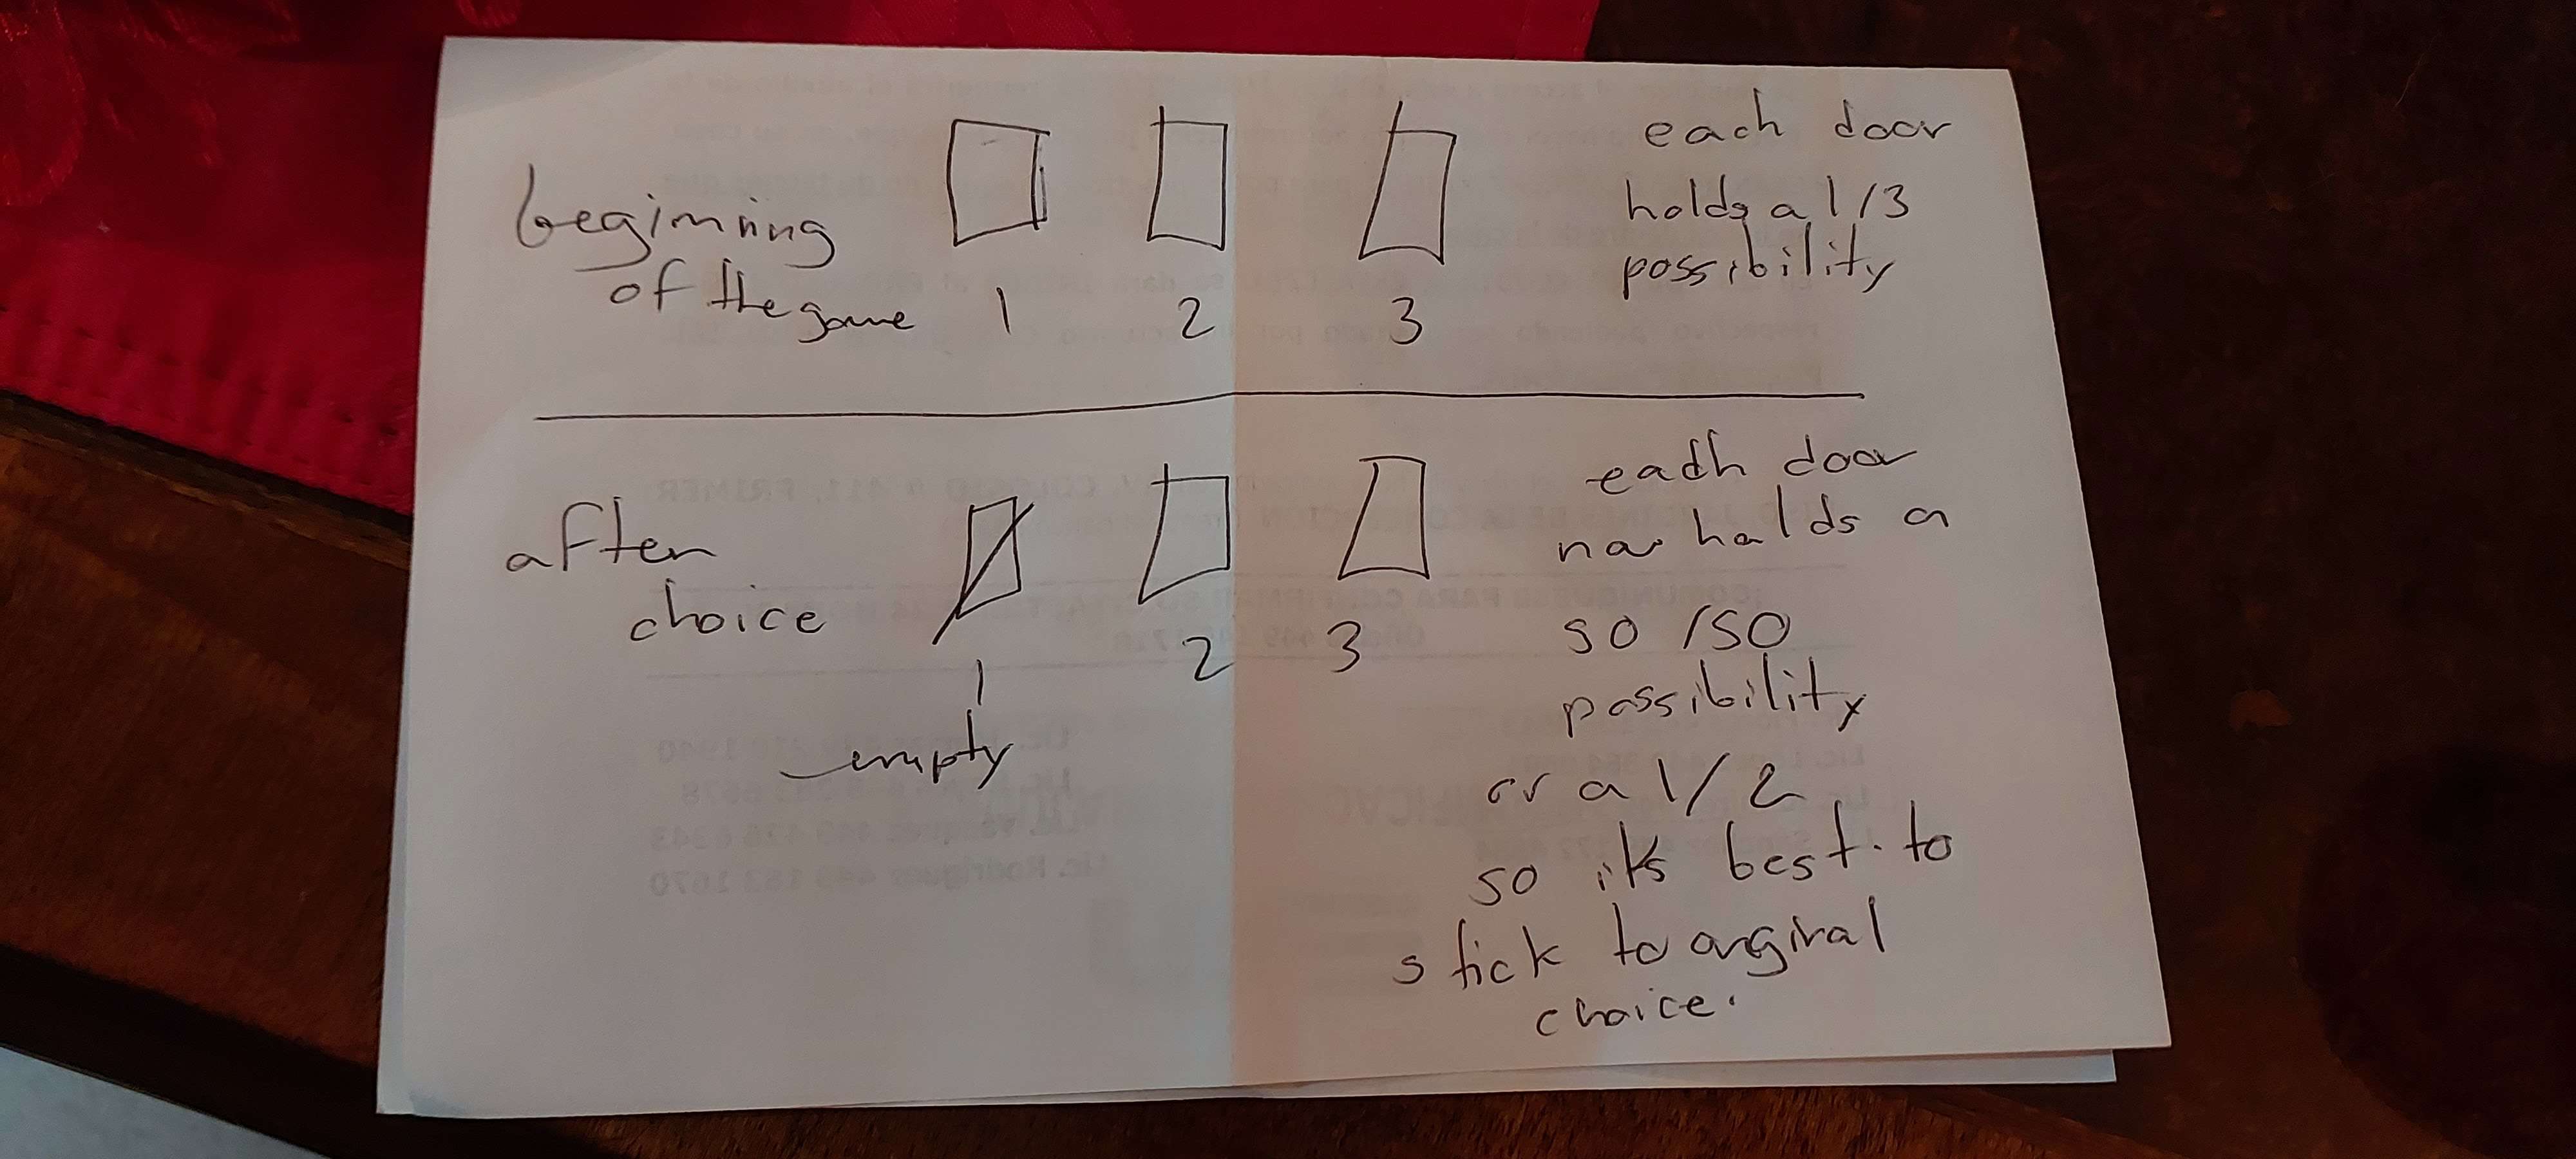 beginning
of the game
1 2 3
each door
holds a 1/3
possibility
after
choice
1 2 3
empty
each door
now holds a
50/50
possibility
or a 1/2
so it's best to
stick to orginal
choice.